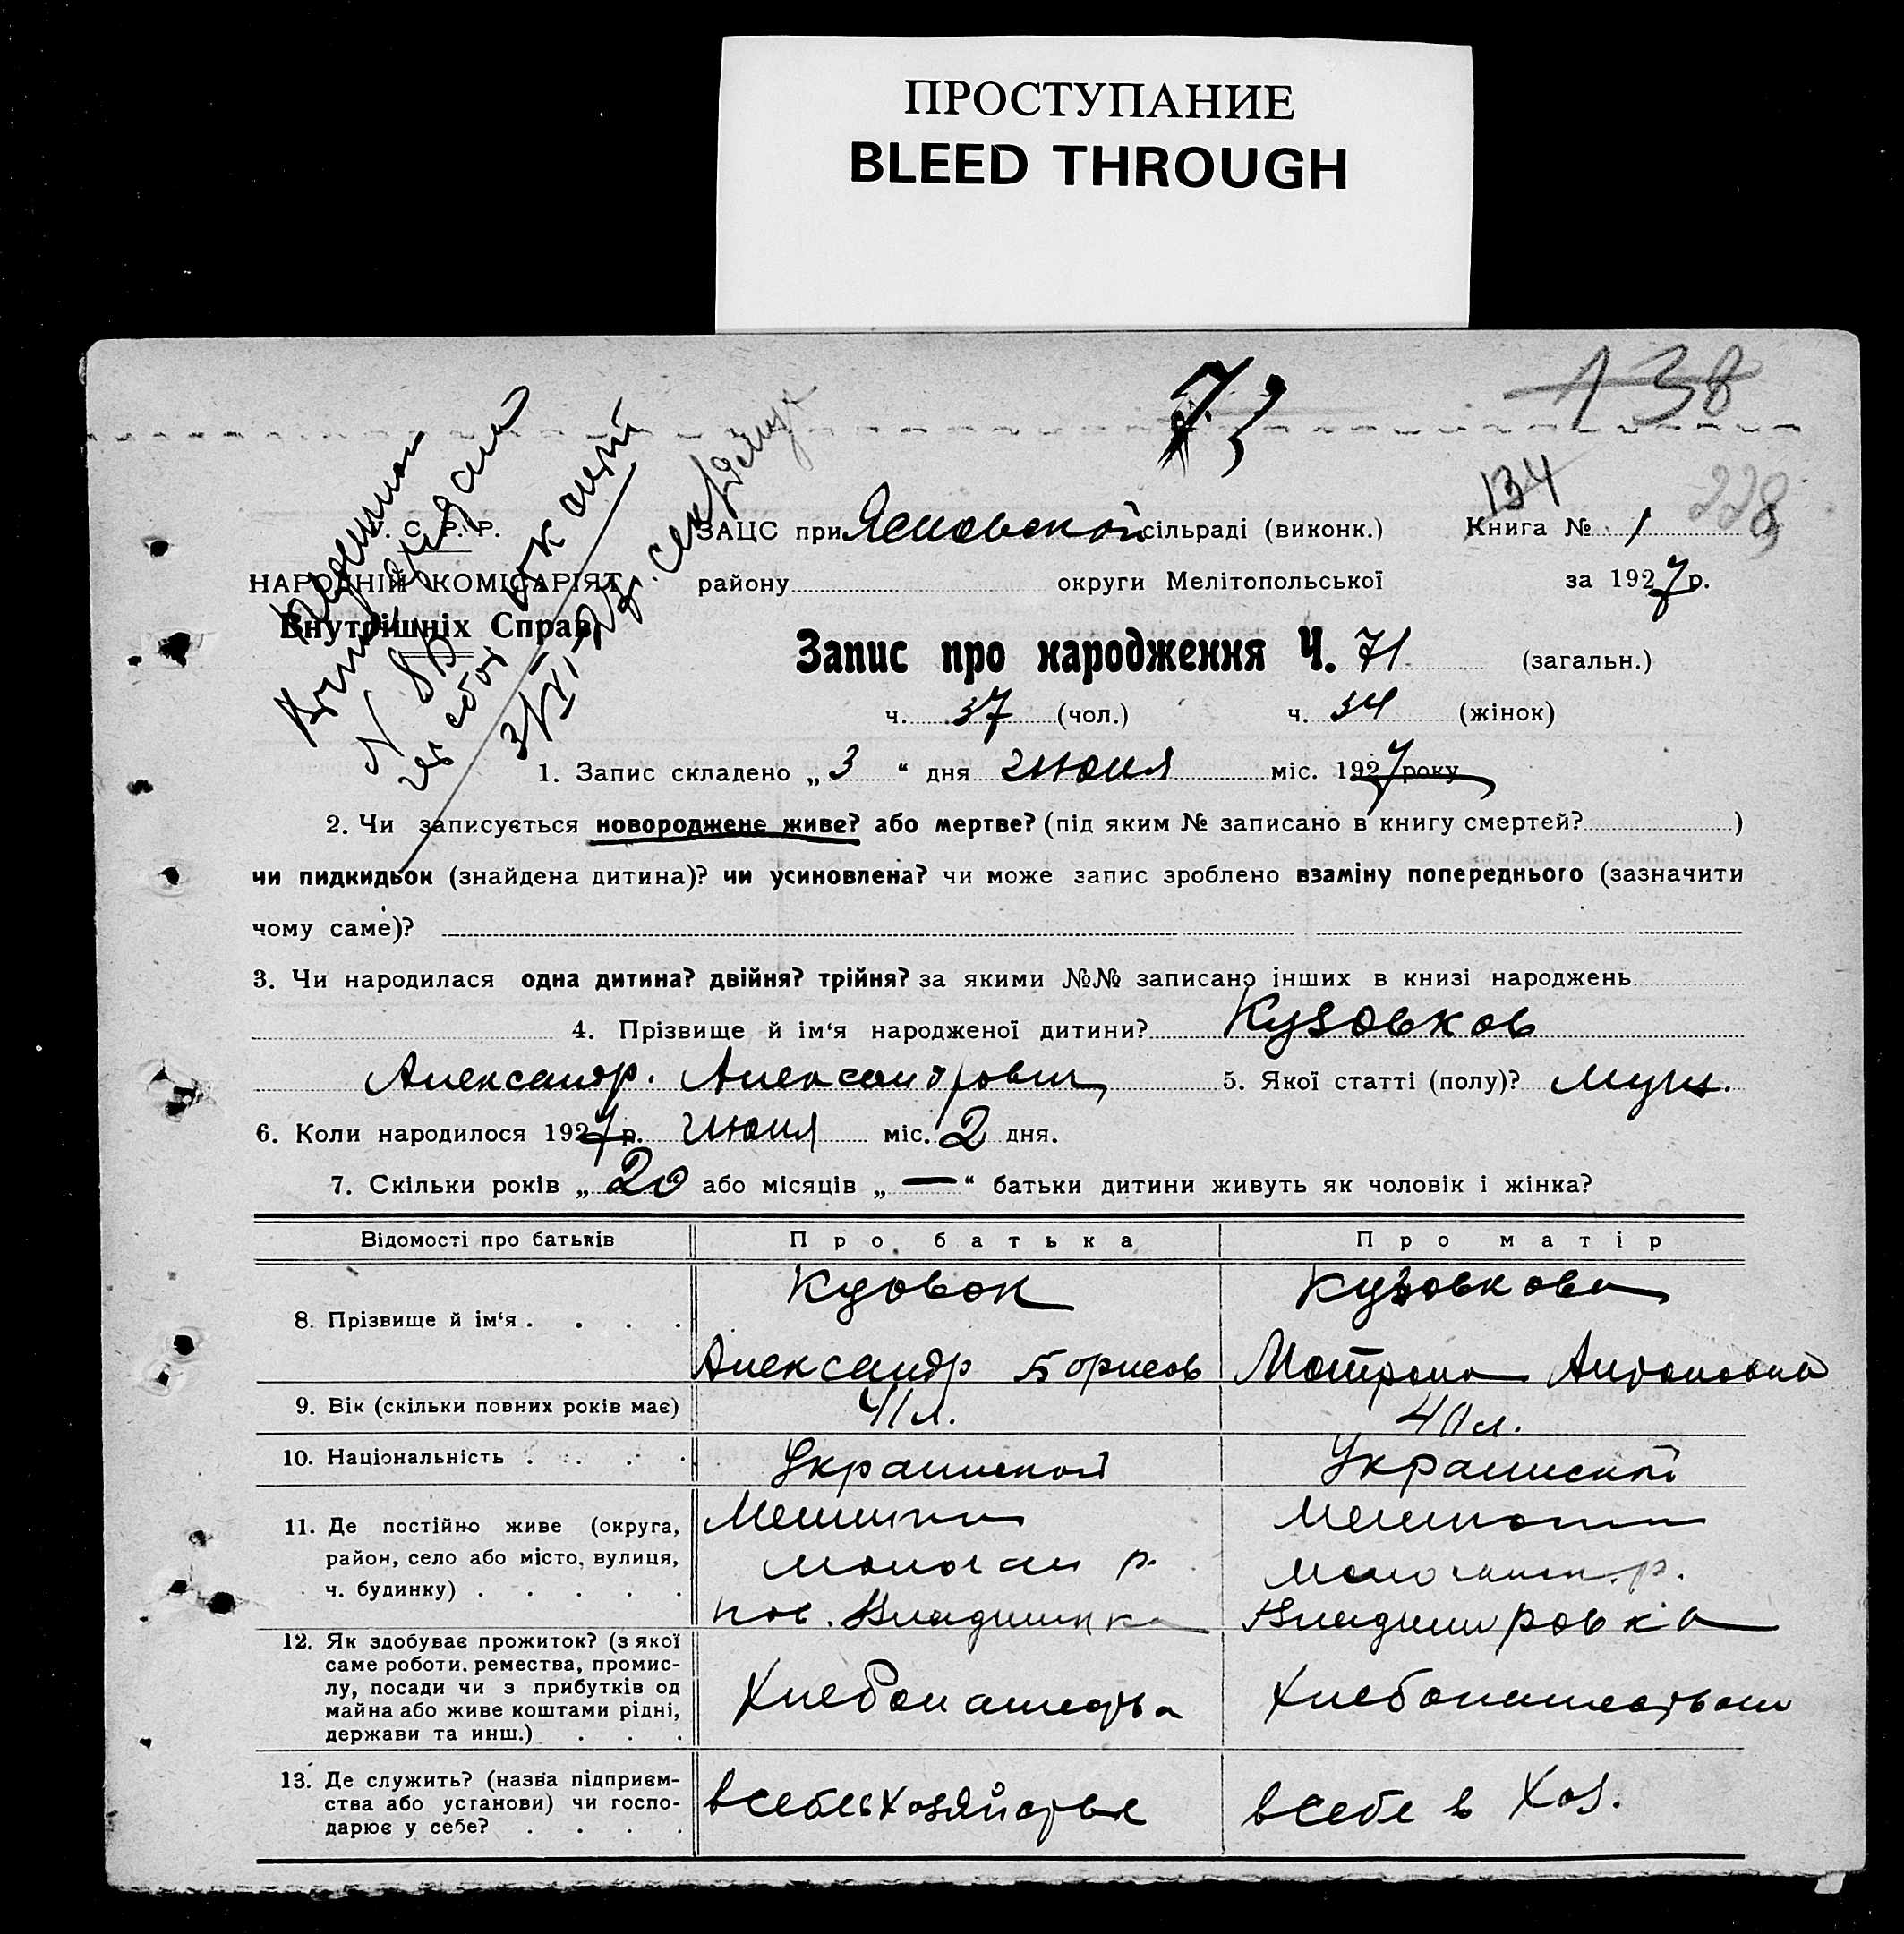 ПРОСТУПАНИЕ
BLEED THROUGH
73
138
134
228
С. Р. Р.
НАРОДНІЙ КОМІСАРІЯТ
Внутрішніх Справ
ЗАЦС при Ясновской сільраді (виконк.) Книга № 1
району округи Мелітопольської за 1927 р.
Запис про народження Ч. 71 (загальн.)
ч. 37 (чол.) ч. 34 (жінок)
1. Запис складено „ 3 “ дня июня міс. 1927 року
2. Чи записується новороджене живе? або мертве? (під яким № записано в книгу смертей? )
чи пидкидьок (знайдена дитина)? чи усиновлена? чи може запис зроблено взаміну попереднього (зазначити
чому саме)?
3. Чи народилася одна дитина? двійня? трійня? за якими №№ записано інших в книзі народжень
4. Прізвище й ім‘я народженої дитини? Кузовков
Александр. Александрович 5. Якої статті (полу)? Муж.
6. Коли народилося 1927 р. июня міс. 2 дня.
7. Скільки років „ 20 або місяців „ — “ батьки дитини живуть як чоловік і жінка?
Відомості про батьків Про батька Про матір
8. Прізвище й ім‘я . . . . Кузовкова
Александр Борисов Матрона Антоновна
9. Вік (скільки повних років має) 41 л. 40 л.
10. Національність . . . . Украинской Украинской
11. Де постійно живе (округа,
район, село або місто, вулиця, р. р.
ч. будинку) . . . . . Владимировка
12. Як здобуває прожиток? (з якої
саме роботи, ремества, промис-
лу, посади чи з прибутків од
майна або живе коштами рідні, Хлебопашества Хлебопашеством
держави та инш.) . . .
13. Де служить? (назва підприєм-
ства або установи) чи госпо- в себе в хозяйстве в себе в хоз.
дарює у себе? . . . .